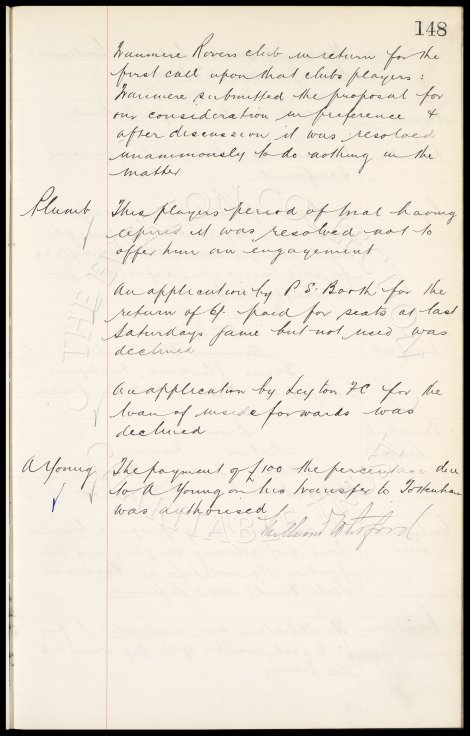 148
Tranmere Rovers club in return for the
first call upon that clubs players:
Tranmere submitted the proposal for
our consideration in preference &
after discussion it was resolved
unanimously to do nothing in the
matter
Plumb This players period of trial having
expired it was resolved not to
offer him an engagement
An application by P. E. Booth for the
return of 6/- paid for seats at last
Saturdays game but not used was
declined
An application by Leyton FC for the
loan of inside forwards was
declined
A Young The payment of £100 the percentage due
to A Young on his transfer to Tottenham
was authorised
THE COLLECTION